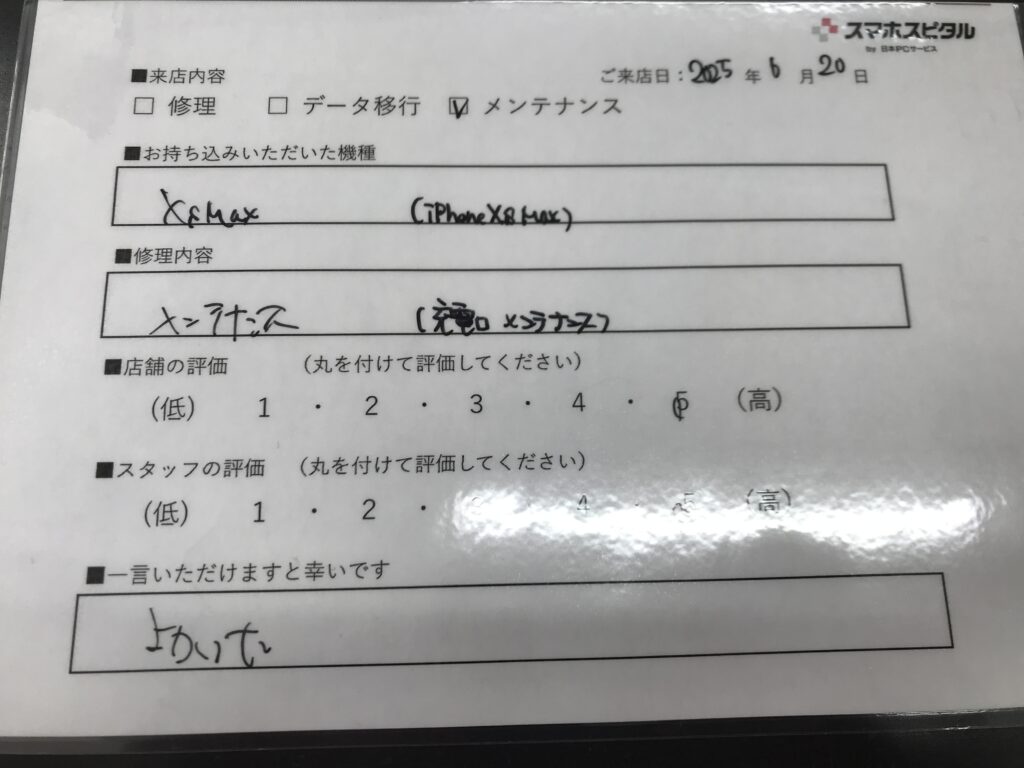 スマホスピタル
by 日本PCサービス
■来店内容
ご来店日：2025 年 6 月 20 日
□ 修理 □ データ移行 ☑ メンテナンス
■お持ち込みいただいた機種
XsMax (iPhoneXsMax)
■修理内容
メンテナンス (充電口 メンテナンス)
■店舗の評価 （丸を付けて評価してください）
（低） 1 ・ 2 ・ 3 ・ 4 ・ 5 （高）
■スタッフの評価 （丸を付けて評価してください）
（低） 1 ・ 2 ・ 3 ・ 4 ・ 5 （高）
■一言いただけますと幸いです
よかった